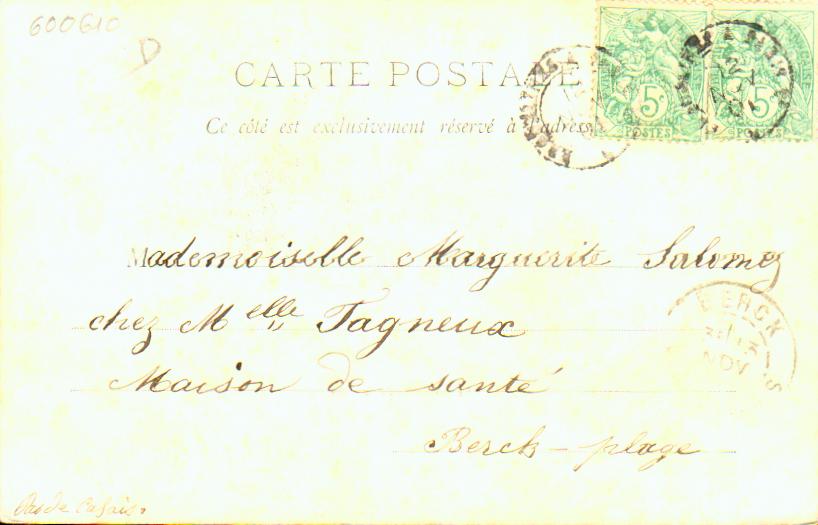 600610
D
CARTE POSTALE
Ce côté est exclusivement réservé à l'adresse
5c 5c
POSTES POSTES
Mademoiselle Marguerite Salomez
chez Melle Tagneux
Maison de santé
Berck-plage
BERCK
NOV
Pas de Calais